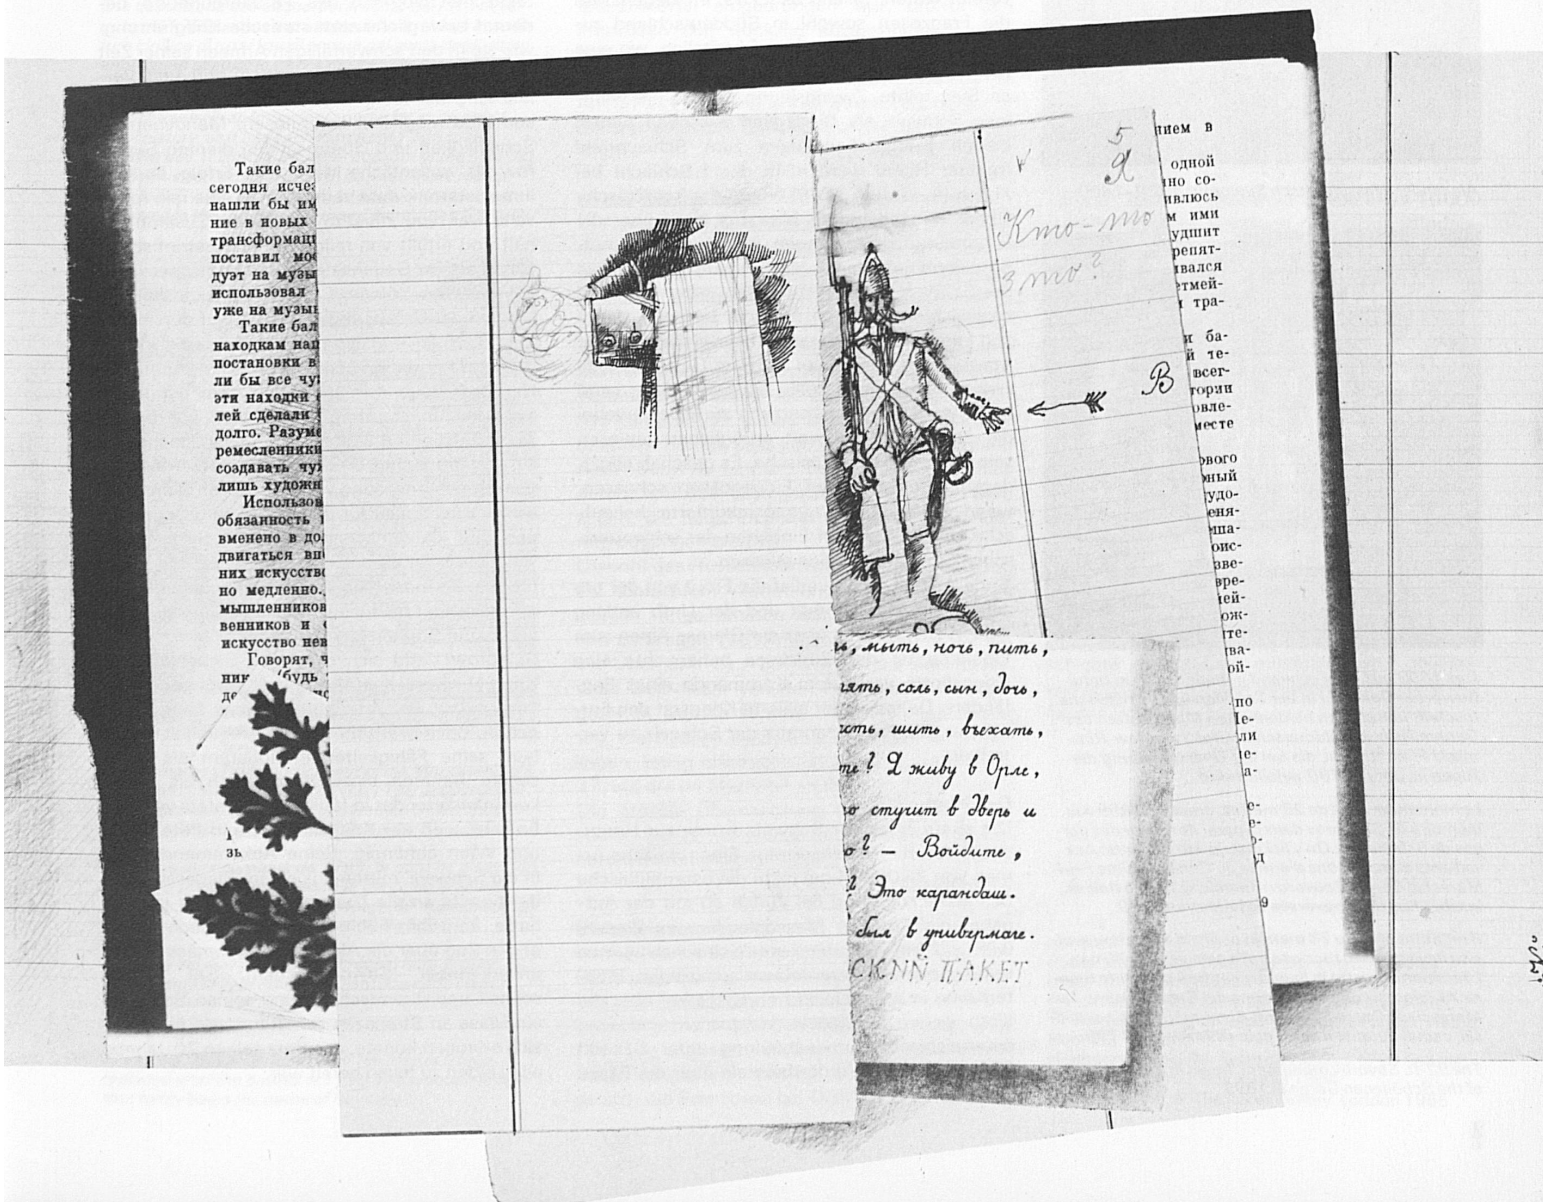 Такие бал
сегодня исчез
нашли бы им
ние в новых
трансформаци
поставил мо
дуэт на музы
использовал
уже на музык
Такие бал
находкам наш
постановки в
ли бы все чу
эти находки
лей сделали
долго. Разуме
ремесленники
создавать чу
лишь художн
Использов
обязанность
вменено в до
двигаться вп
них искусств
но медленно.
мышленников
венников и
искусство нев
Говорят, ч
ник будь
де
зь
5
Я
Кто-то
это?
В
ь, мыть, ночь, пить,
ять, соль, сын, дочь,
сть, шить, въехать,
те? Я живу в Орле,
о стучит в дверь и
о? — Войдите,
? Это карандаш.
был в универмаге.
СКИЙ ПАКЕТ
нием в
одной
но со-
ивлюсь
м ими
удшит
репят-
ивался
етмей-
тра-
и ба-
й те-
всег-
тории
овле-
месте
ового
ный
удо-
еня-
ша-
оис-
зве-
вре-
ей-
ож-
те-
ва-
ой-
по
Ie-
ли
е-
а-
е-
е-
о-
д
9